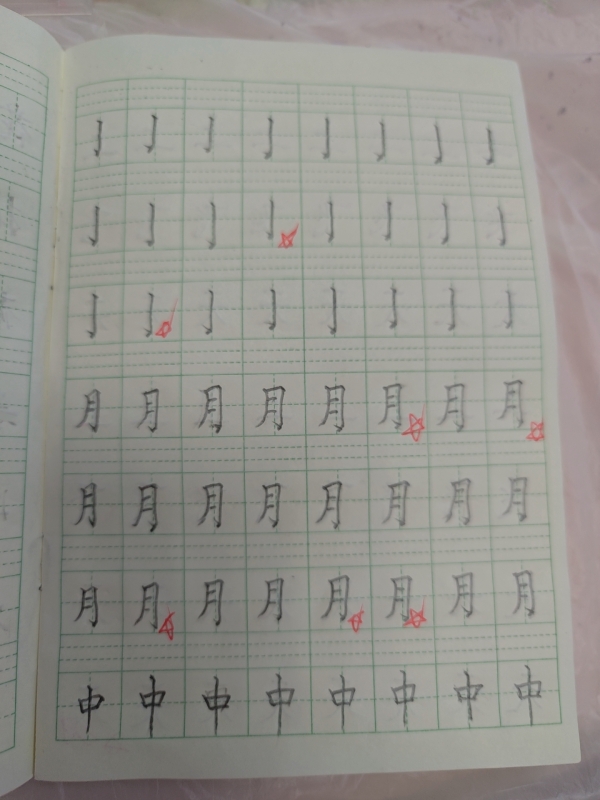 亅 亅 亅 亅 亅 亅 亅 亅
亅 亅 亅 亅 亅 亅 亅 亅
亅 亅 亅 亅 亅 亅 亅 亅
月 月 月 月 月 月 月 月
月 月 月 月 月 月 月 月
月 月 月 月 月 月 月 月
中 中 中 中 中 中 中 中